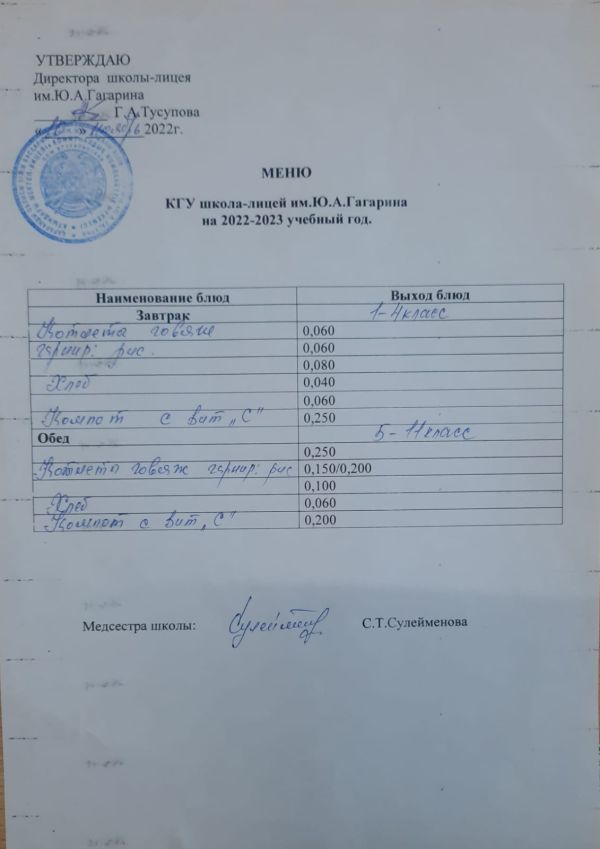 УТВЕРЖДАЮ
Директора школы-лицея
им.Ю.А.Гагарина
Г.А.Тусупова
« » ноябрь 2022г.
МЕНЮ
КГУ школа-лицей им.Ю.А.Гагарина
на 2022-2023 учебный год.
Наименование блюд Выход блюд
Завтрак 1-4 класс
Котлета говяж 0,060
гарнир: рис. 0,060
0,080
Хлеб 0,040
0,060
Компот с вит „С" 0,250
Обед 5-11 класс
0,250
Котлета говяж гарнир: рис 0,150/0,200
0,100
Хлеб 0,060
Компот с вит „С" 0,200
Медсестра школы: С.Т.Сулейменова